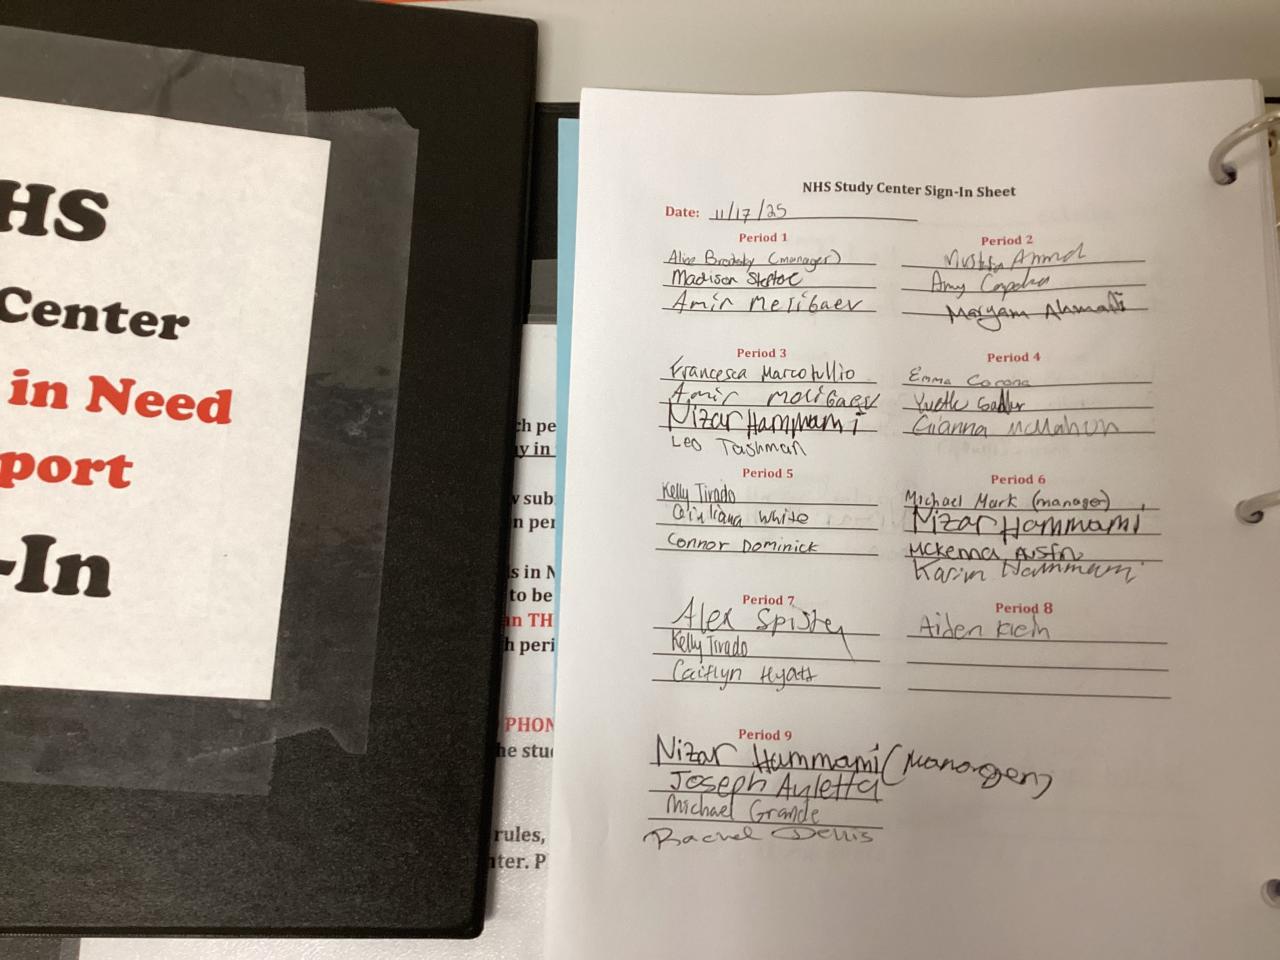 HS
Center
in Need
port
-In
ch pe
y in
sub
n per
s in N
to be
an TH
h peri
PHON
he stu
rules,
nter. P
NHS Study Center Sign-In Sheet
Date: 11/17/25
Period 1
Alice Brodsky (manager)
Madison Steptoe
Amir Melibaev
Period 2
Ahmed
Amy
Maryam Ahmadi
Period 3
Francesca Marcotullio
Amir Melibaev
Nizar Hammami
Leo Tashman
Period 4
Emma Corona
Yvette
Gianna McMahon
Period 5
Kelly Tirado
Giuliana White
Connor Dominick
Period 6
Michael Mark (manager)
Nizar Hammami
McKenna Austin
Karim Hammami
Period 7
Alex
Kelly Tirado
Caitlyn Hyatt
Period 8
Aiden Klein
Period 9
Nizar Hammami (Manager)
Joseph Auletta
Michael Grande
Rachel Dellis